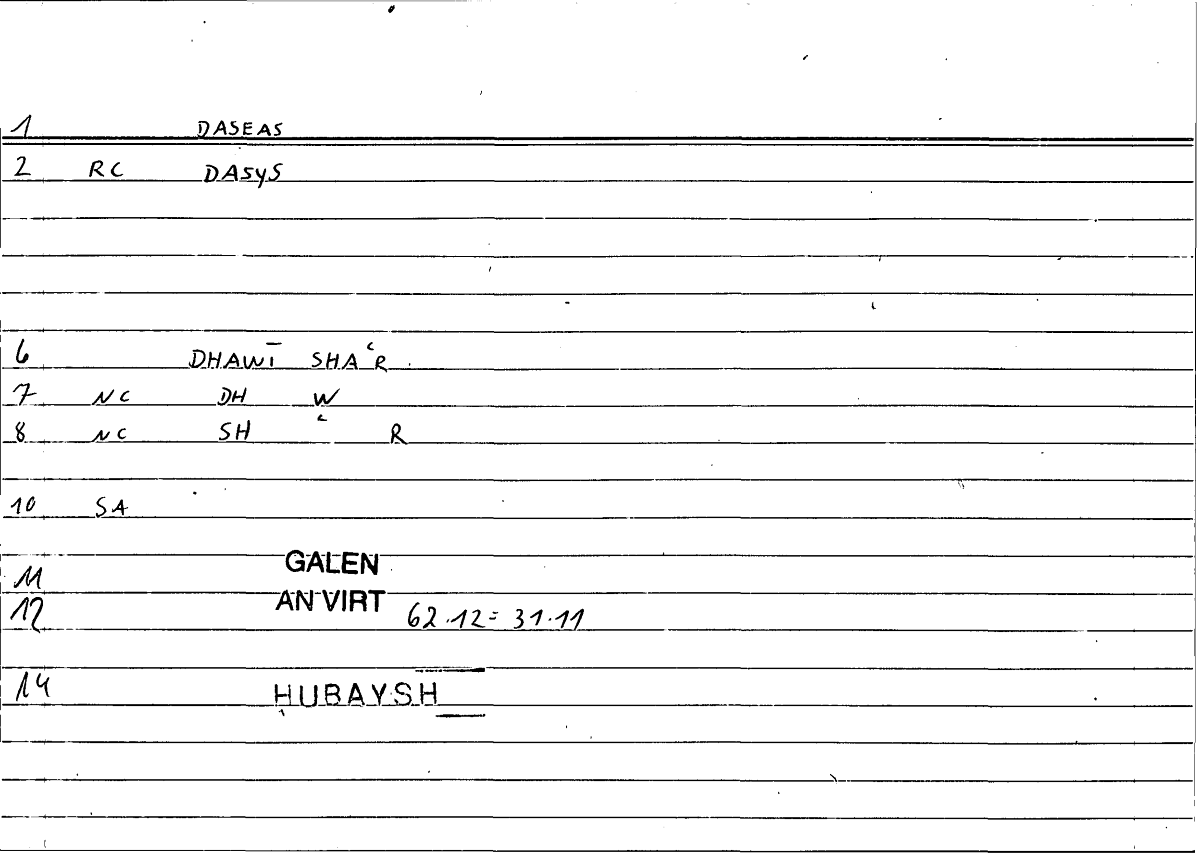 1 DASEAS
2 RC DASYS
6 DHAWĪ SHAʿR
7 NC DH W
8 NC SH ʿ R
10 SA
11 GALEN
12 AN VIRT 62.12 = 31.11
14 ḤUBAYSH